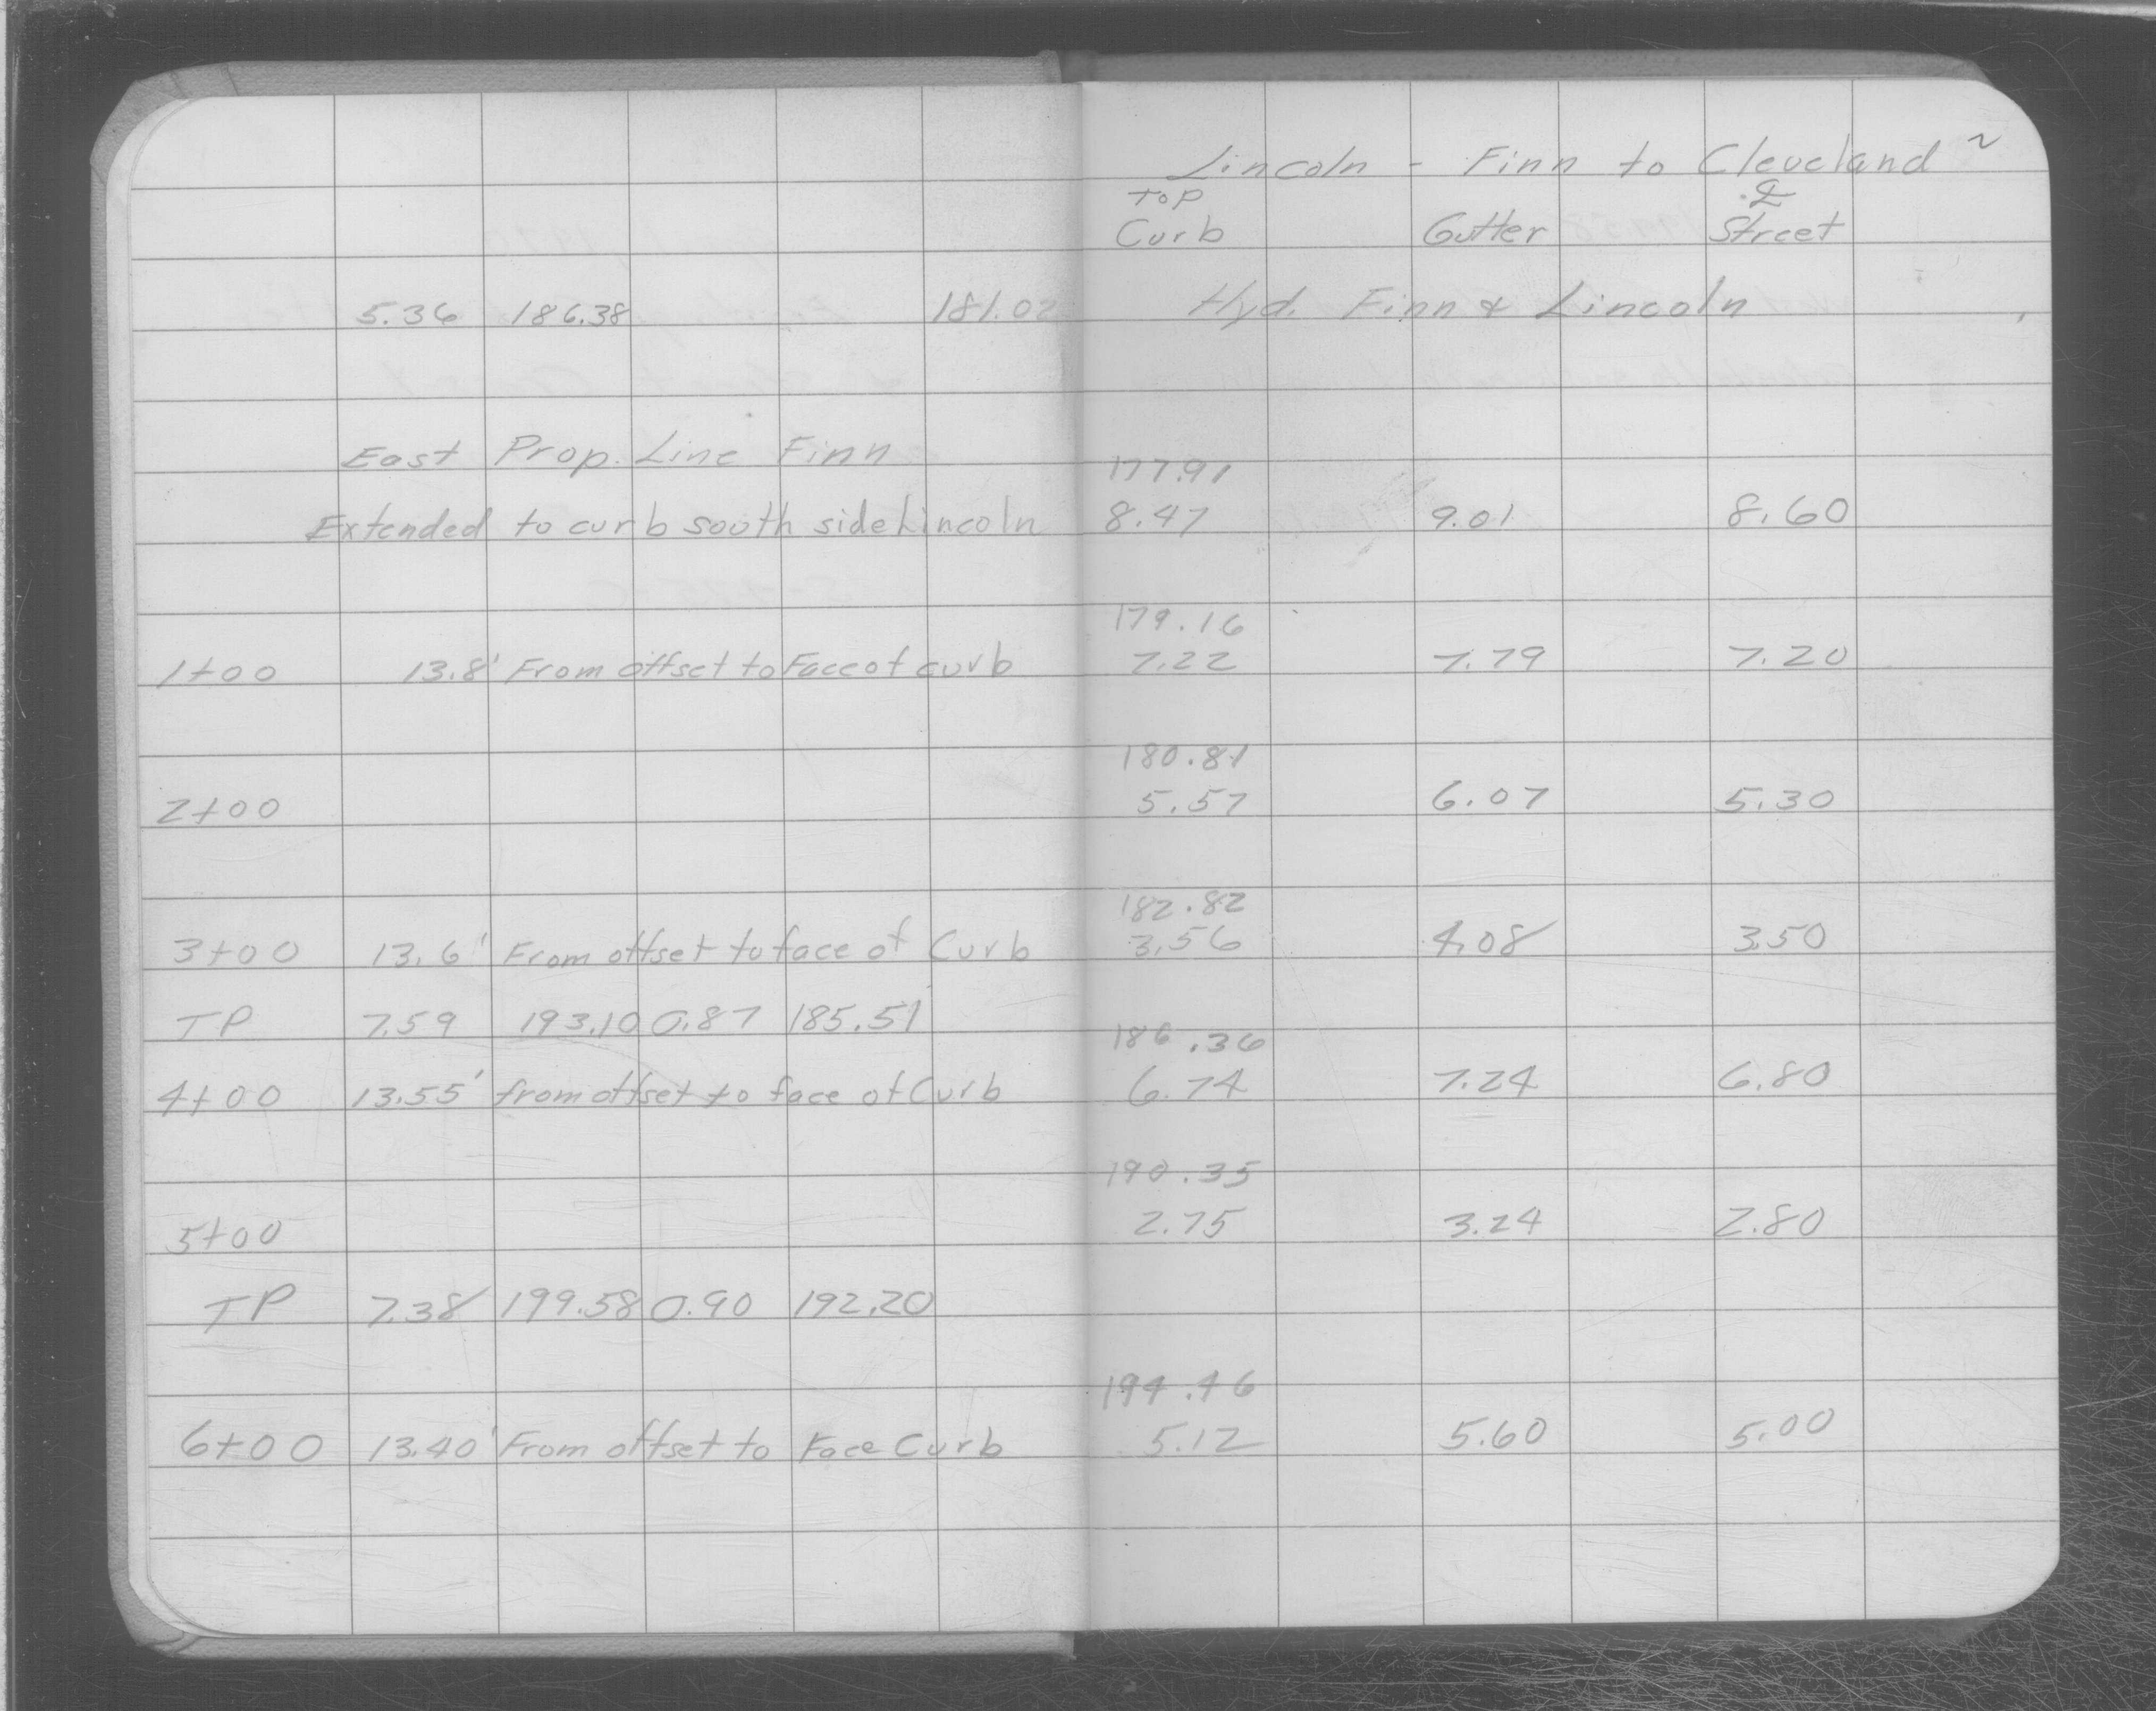 Lincoln - Finn to Cleveland
Top ℄
Curb Gutter Street
5.36 186.38 181.02 Hyd. Finn & Lincoln
East Prop. Line Finn 177.91
Extended to curb south side Lincoln 8.47 9.01 8.60
179.16
1+00 13.8' From offset to Face of curb 7.22 7.79 7.20
180.81
2+00 5.57 6.07 5.30
182.82
3+00 13.6' From offset to face of Curb 3.56 4.08 3.50
TP 7.59 193.10 0.87 185.51
186.36
4+00 13.55' from offset to face of Curb 6.74 7.24 6.80
190.35
5+00 2.75 3.24 2.80
TP 7.38 199.58 0.90 192.20
194.46
6+00 13.40' From offset to Face Curb 5.12 5.60 5.00